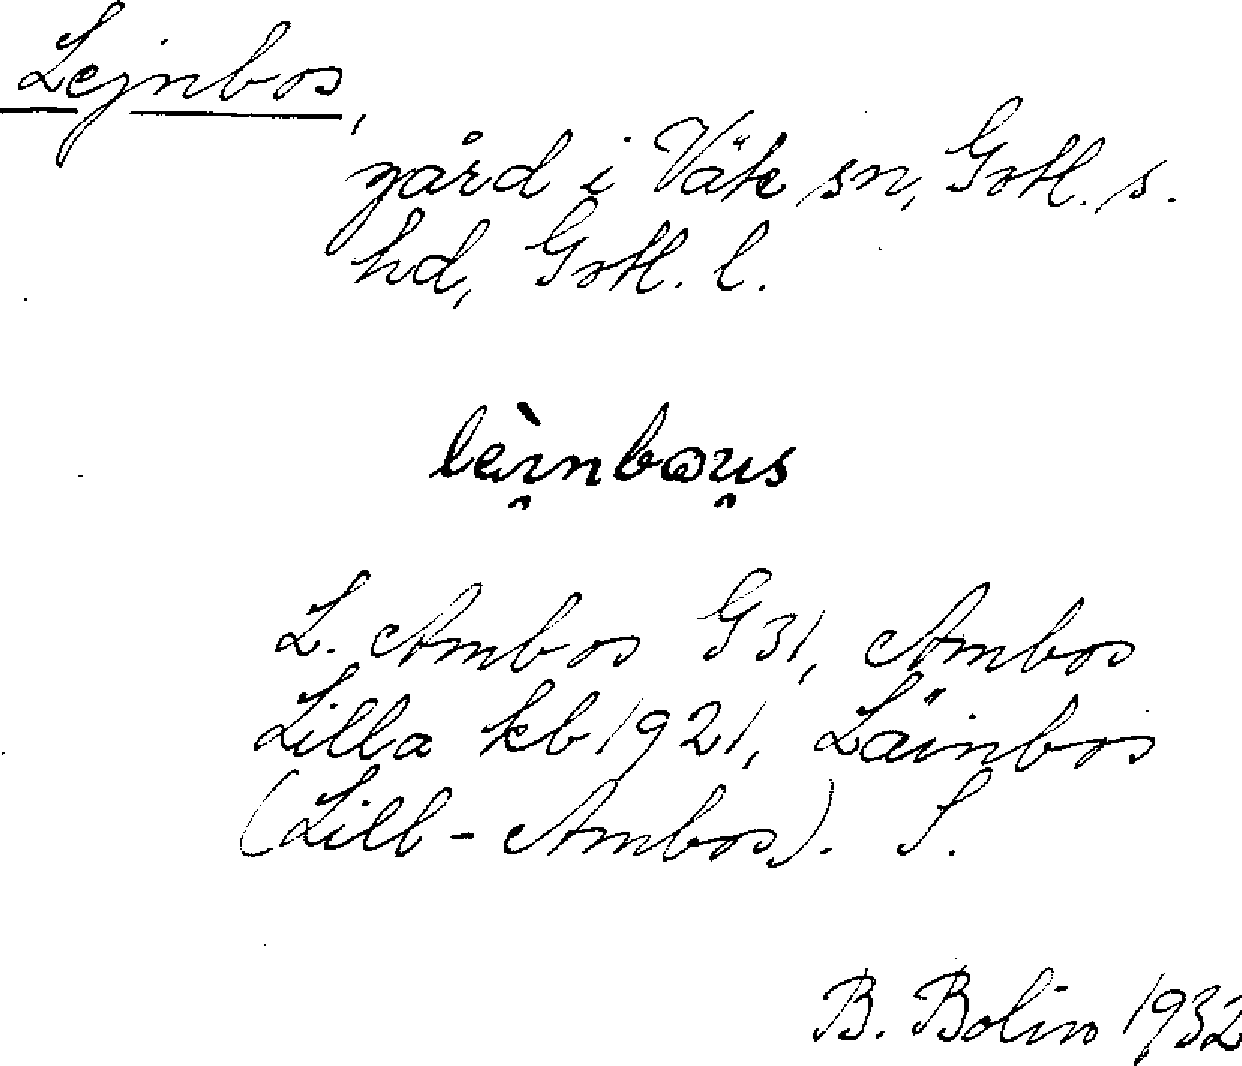 Lejnbos,
gård i Väte sn, Gotl. s.
hd, Gotl. l.
lèi̯nbωu̯s
L. Ambos G 31, Ambos
Lilla kb 1921, Läinbos
(Lill-Ambos). S.
B. Bolin 1932